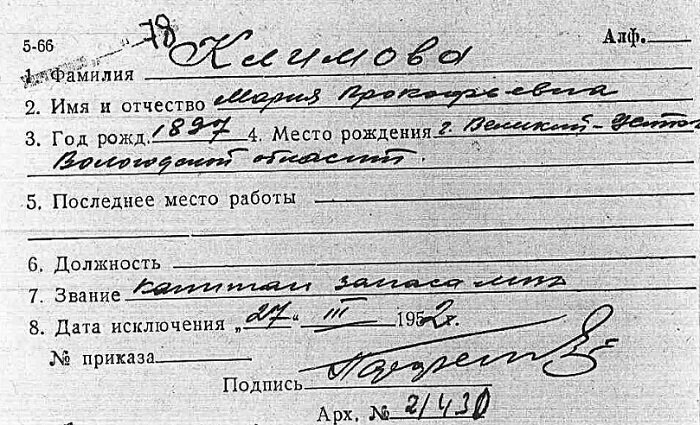 18
5-66 Алф.
1. Фамилия Климова
2. Имя и отчество Мария Прокофьевна
3. Год рожд. 1897 4. Место рождения г. Великий-Устюг
Вологодской области.
5. Последнее место работы
6. Должность
7. Звание капитан запаса
8. Дата исключения „27" III 1952г.
№ приказа
Подпись
Арх. № 21430